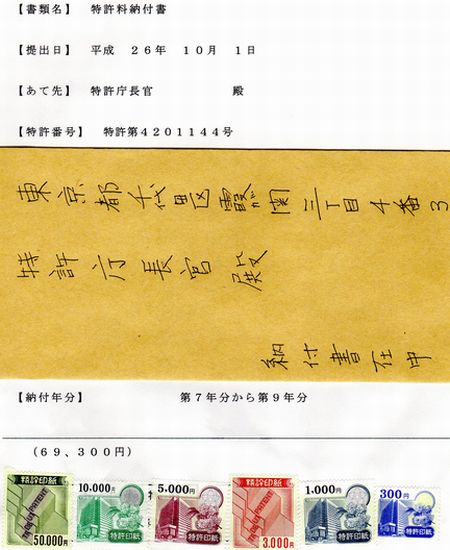 【書類名】 特許料納付書
【提出日】 平成 26年 10月 1日
【あて先】 特許庁長官 殿
【特許番号】 特許第4201144号
東京都千代田区霞が関三丁目4番3
特許庁長官殿
納付書在中
【納付年分】 第7年分から第9年分
(69,300円)
特許印紙 PATENT 50.000円
10.000円 特許印紙
5.000円 特許印紙
特許印紙 PATENT 3.000円
1.000円 特許印紙
300円 特許印紙